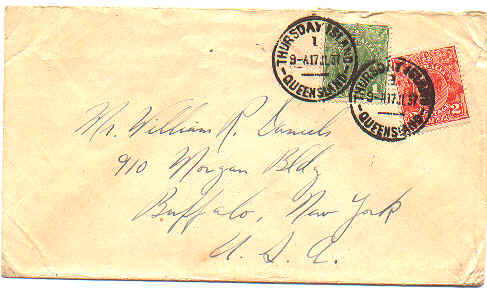 THURSDAY ISLAND
1
9-A17JL37
-QUEENSLAND-
1
THURSDAY ISLAND
1
9-A17JL37
-QUEENSLAND-
2
Mr. William R. Daniels
910 Morgan Bldg
Buffalo, New York
U. S. A.